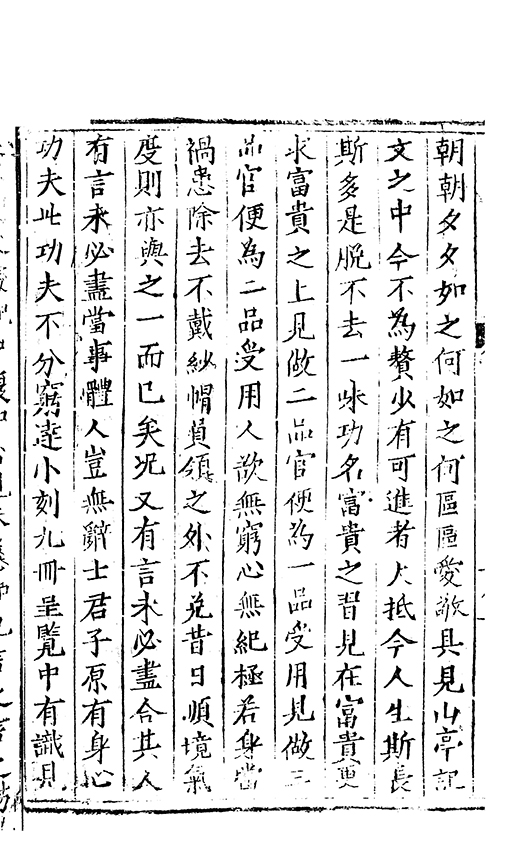 朝朝夕夕如之何如之何區區愛敬具見山亭記
文之中今不為贅少有可進者大抵今人生斯長
斯多是脫不去一味功名富貴之習見在富貴更
求富貴之上見做二品官便為一品受用見做三
品官便為二品受用人欲無窮心無紀極若身當
禍患除去不戴紗帽員領之外不免昔日順境氣
度則亦與之一而已矣况又有言未必盡合其人
有言未必盡當事體人豈無辭士君子原有身心
功夫此功夫不分窮達小刻九冊呈覽中有識見